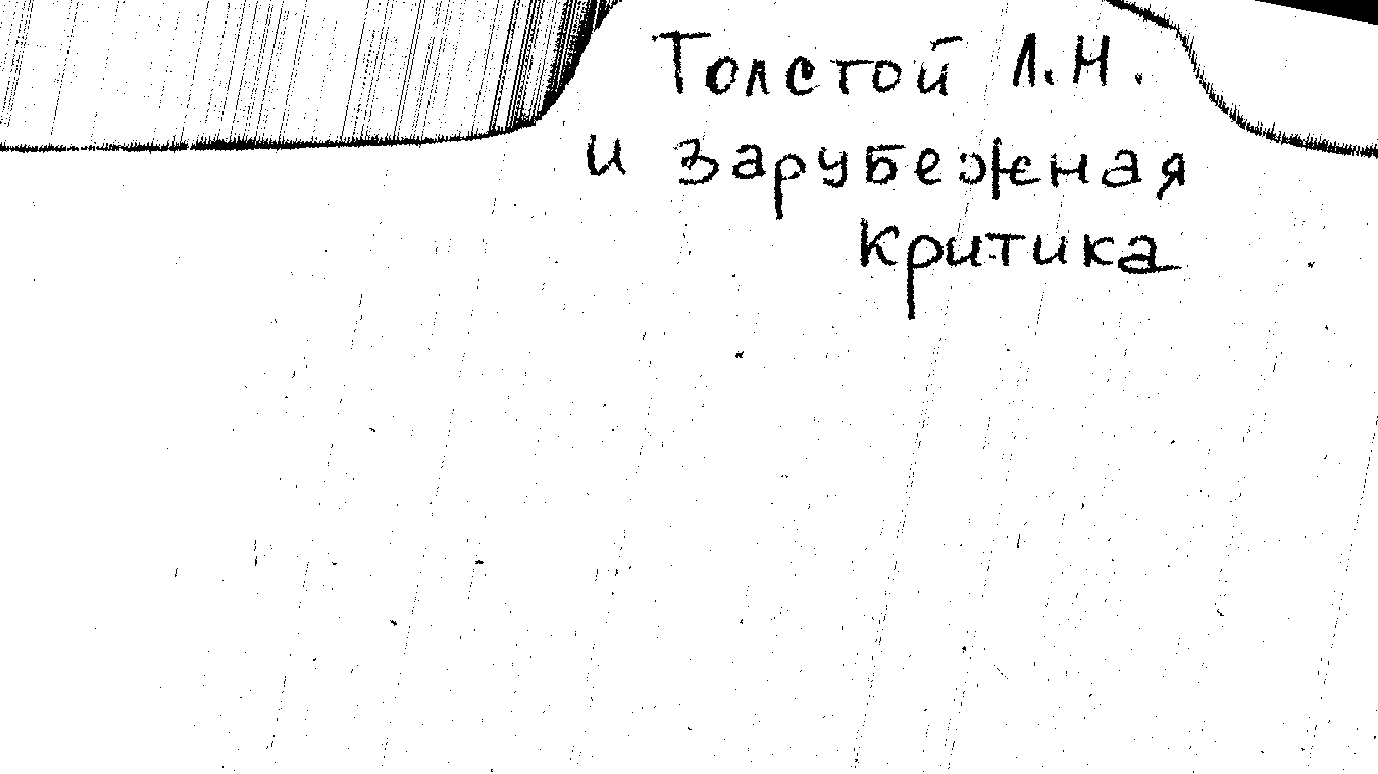 Толстой Л.Н.
и зарубежная
критика